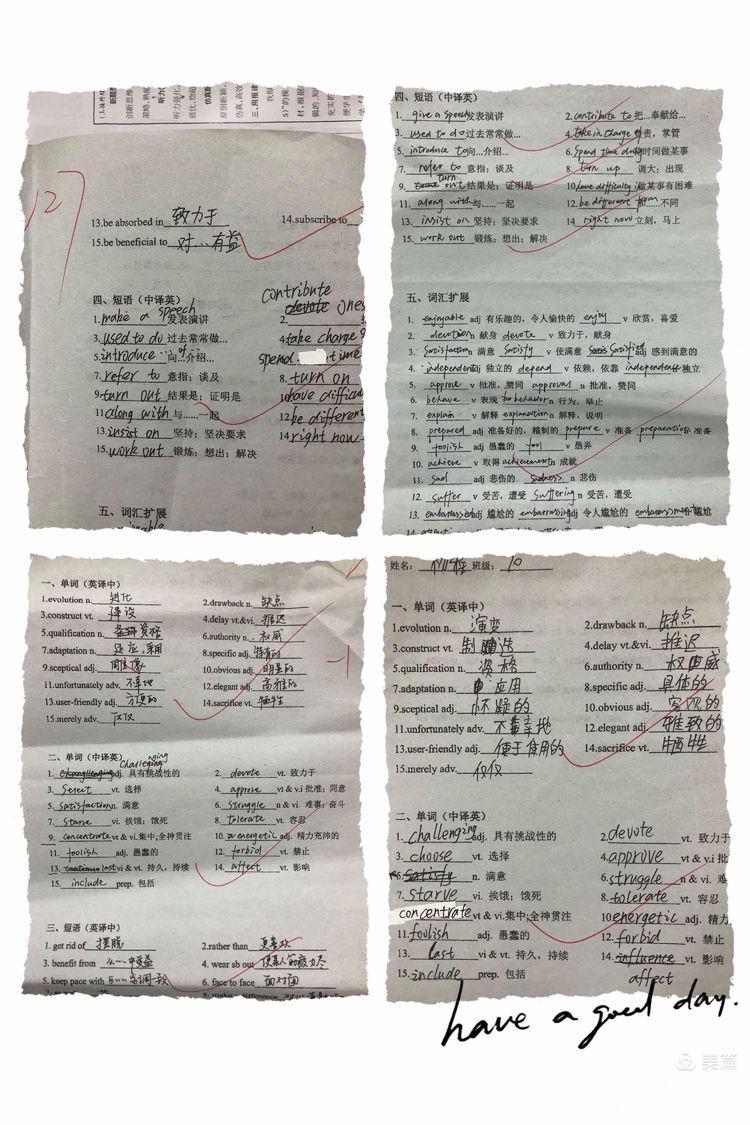 127
13.be absorbed in 致力于 14.subscribe to
15.be beneficial to 对...有益
四、短语（中译英）
1.make a speech 发表演讲 2. contribute
3.used to do 过去常常做... 4.take charge
5.introduce...向...介绍... spend time
7.refer to 意指；谈及 8.turn on
9.turn out 结果是；证明是 10.have difficul
11.along with 与......一起 12.be different
13.insist on 坚持；坚决要求 14.right now
15.work out 锻炼；想出；解决
五、词汇扩展
四、短语（中译英）
1. give a speech 发表演讲 2.contribute to 把...奉献给...
3. used to do 过去常常做... 4.take in charge 负责，掌管
5. introduce to 向...介绍... 6.spend time doing 时间做某事
7. refer to 意指；谈及 8. turn up 调大；出现
9. turn out 结果是；证明是 10.have difficulty 做某事有困难
11. along with 与......一起 12.be different from 与...不同
13. insist on 坚持；坚决要求 14 right now 立刻，马上
15. work out 锻炼；想出；解决
五、词汇扩展
1. enjoyable adj 有乐趣的，令人愉快的 enjoy v 欣赏，喜爱
2. devotion n 献身 devote v 致力于，献身
3. satisfaction n 满意 satisfy v 使满意 satisfied adj 感到满意的
4. independent adj 独立的 depend v 依赖，依靠 independent 独立
5. approve v 批准，赞同 approval n 批准，赞同
6. behave v 表现 behavior n 行为，举止
7. explain v 解释 explanation n 解释，说明
8. prepared adj 准备好的，精制的 prepare v 准备 preparation n 准备
9. foolish adj 愚蠢的 fool v 愚弄
10. achieve v 取得 achievement n 成就
11. sad adj 悲伤的 sadness n 悲伤
12. suffer v 受苦，遭受 suffering n 受苦，遭受
13. embarrassed adj 尴尬的 embarrassing adj 令人尴尬的 embarrassment n 尴尬
一、单词（英译中）
1.evolution n. 进化 2.drawback n. 缺点
3.construct vt. 建设 4.delay vt.&vi. 推迟
5.qualification n. 资格 6.authority n. 权威
7.adaptation n. 适应，采用 8.specific adj. 特有的
9.sceptical adj. 10.obvious adj. 明显的
11.unfortunately adv. 不幸地 12.elegant adj. 高雅的
13.user-friendly adj. 方便的 14.sacrifice vt. 牺牲
15.merely adv. 仅仅
二、单词（中译英）
1. challenging adj. 具有挑战性的 2. devote vt. 致力于
3. select vt. 选择 4. approve vt & v.i 批准；同意
5. satisfaction n. 满意 6. struggle n & vi. 难事；奋斗
7. starve vi. 挨饿；饿死 8. tolerate vt. 容忍
9. concentrate vt & vi.集中;全神贯注 10. energetic adj. 精力充沛的
11. foolish adj. 愚蠢的 12. forbid vt. 禁止
13. last vi & vt. 持久，持续 14. affect vt. 影响
15. include prep. 包括
三、短语（英译中）
1. get rid of 摆脱 2.rather than 更喜欢
3. benefit from 从...中受益 4. wear sb out 使某人筋疲力尽
5. keep pace with 与...步调一致 6. face to face 面对面
姓名： 班级： 10
一、单词（英译中）
1.evolution n. 演变 2.drawback n. 缺点
3.construct vt. 制造 4.delay vt.&vi. 推迟
5.qualification n. 资格 6.authority n. 权威
7.adaptation n. 应用 8.specific adj. 具体的
9.sceptical adj. 怀疑的 10.obvious adj. 客观的
11.unfortunately adv. 不幸地 12.elegant adj. 雅致的
13.user-friendly adj. 便于使用的 14.sacrifice vt. 牺牲
15.merely adv. 仅仅
二、单词（中译英）
1. challenging adj. 具有挑战性的 2.devote vt. 致力于
3. choose vt. 选择 4.approve vt & v.i 批
5. satisfy n. 满意 6.struggle n & vi. 难
7. starve vi. 挨饿；饿死 8.tolerate vt. 容忍
concentrate vt & vi.集中;全神贯注 10energetic adj. 精力
11.foolish adj. 愚蠢的 12.forbid vt. 禁止
13. last vi & vt. 持久，持续 14.influence vt. 影响
15.include prep. 包括 affect
have a good day.
美篇